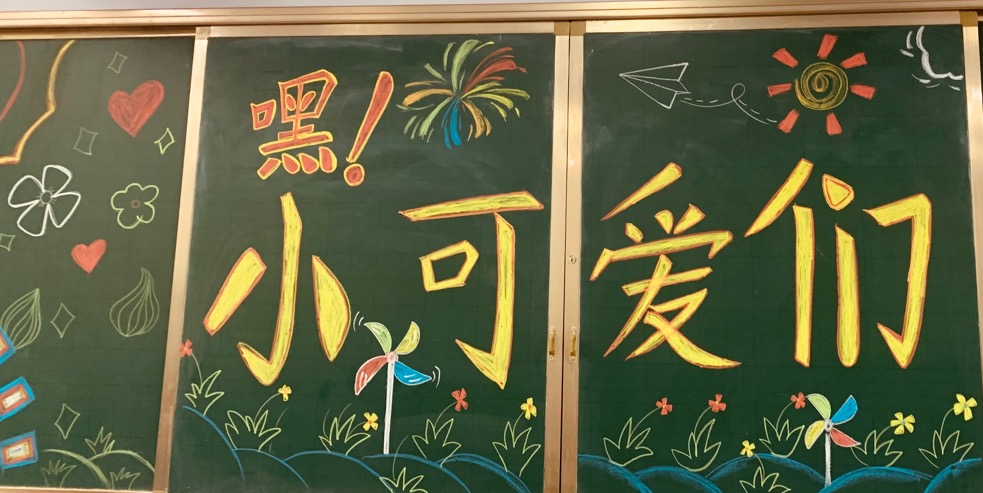 嘿!
小可爱们